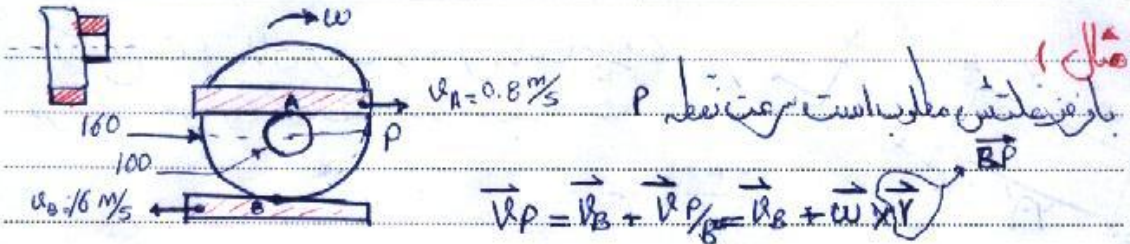 مثال ۱)
با فرض غلتش مطلوب است سرعت نقطه P
ω
A
v_A = 0.8 m/s
P
160
100
v_B = /6 m/s
B
\vec{BP}
\vec{v}_P = \vec{v}_B + \vec{v}_{P/B} = \vec{v}_B + \vec{ω} × \vec{r}